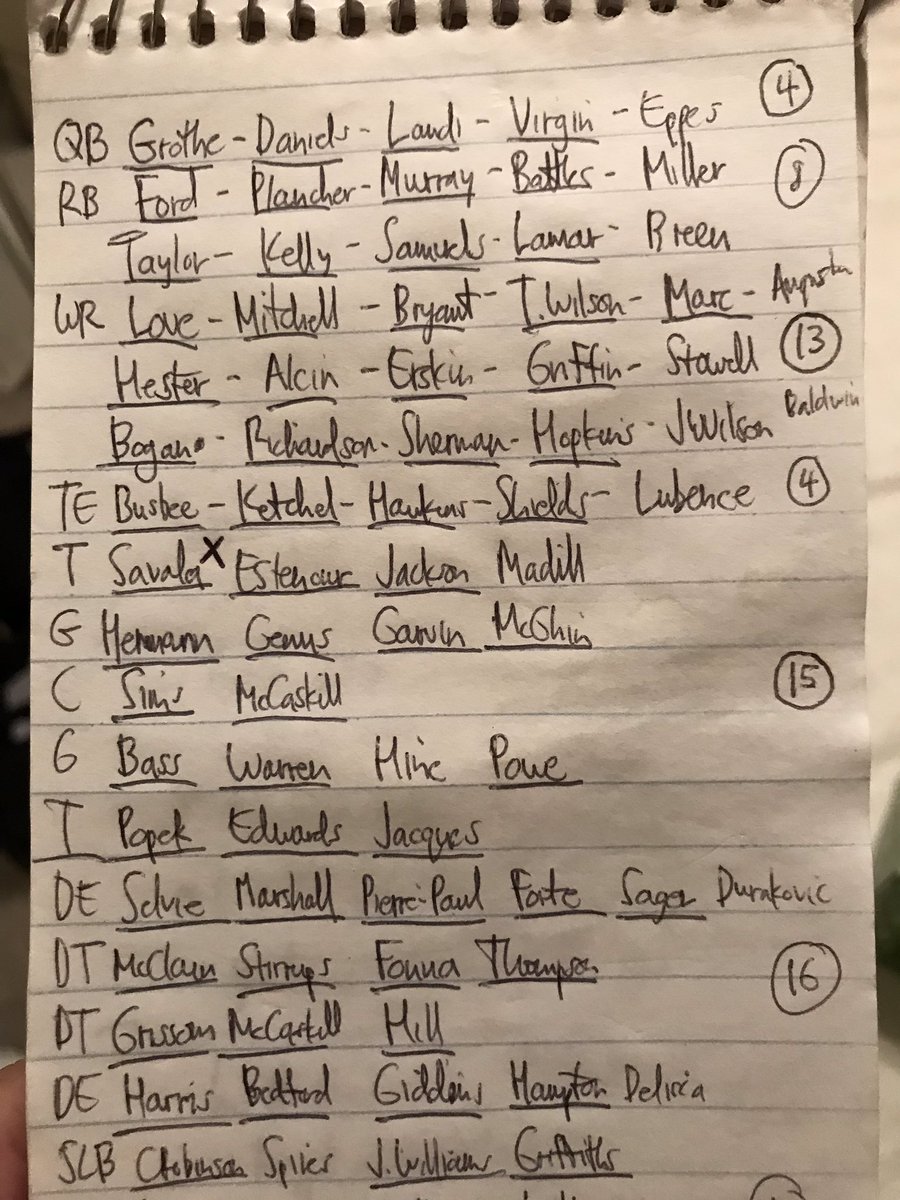 QB Grothe - Daniels - Landi - Virgin - Eppes ④
RB Ford - Plancher - Murray - Battles - Miller ⑧
Taylor - Kelly - Samuels - Lamar - Breen
WR Love - Mitchell - Bryant - T.Wilson - Marc - Augustin
Hester - Alcin - Erskin - Griffin - Stowell ⑬
Bogan - Richardson - Sherman - Hopkins - J.Wilson Baldwin
TE Busbee - Ketchel - Hawkins - Shields - Lubence ④
T Savala X Jackson Madill
G Hermann Genus Garvin McGhin
C Sims McCaskill ⑮
G Bass Warren Hinc Powe
T Popek Edwards Jacques
DE Selvie Marshall Pierre-Paul Forte Sager Durakovic
DT McClain Stirrups Fonua Thompson ⑯
DT Grissom McCaskill Hill
DE Harris Bedford Giddins Hampton Delicia
SLB C.Robinson Spikes J.Williams Griffiths